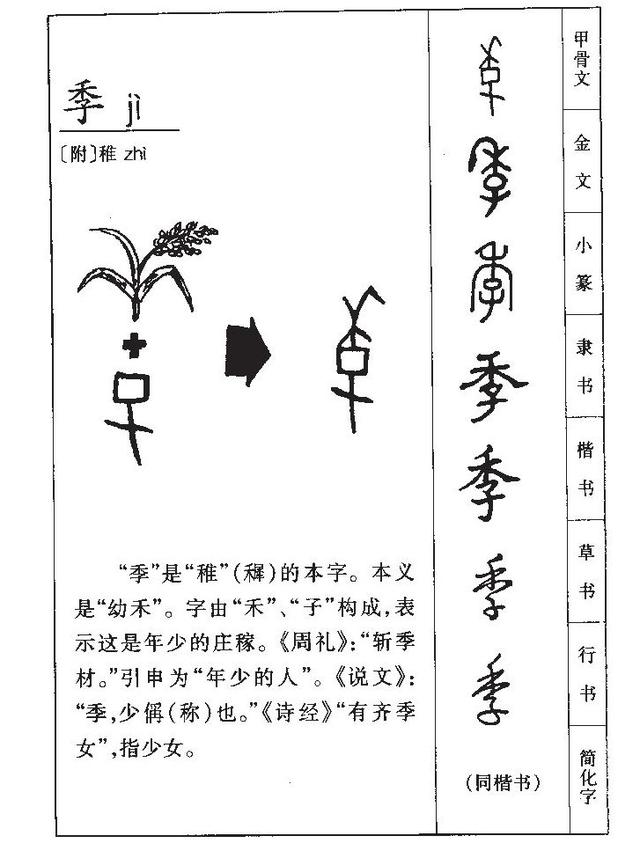 季 jì
〔附〕稚 zhì
“季”是“稚”(稺)的本字。本义
是“幼禾”。字由“禾”、“子”构成,表
示这是年少的庄稼。《周礼》:“斩季
材。”引申为“年少的人”。《说文》:
“季,少偁(称)也。”《诗经》“有齐季
女”,指少女。
甲骨文
季
金文
季
小篆
季
隶书
季
楷书
季
草书
季
行书
季
简化字
(同楷书)